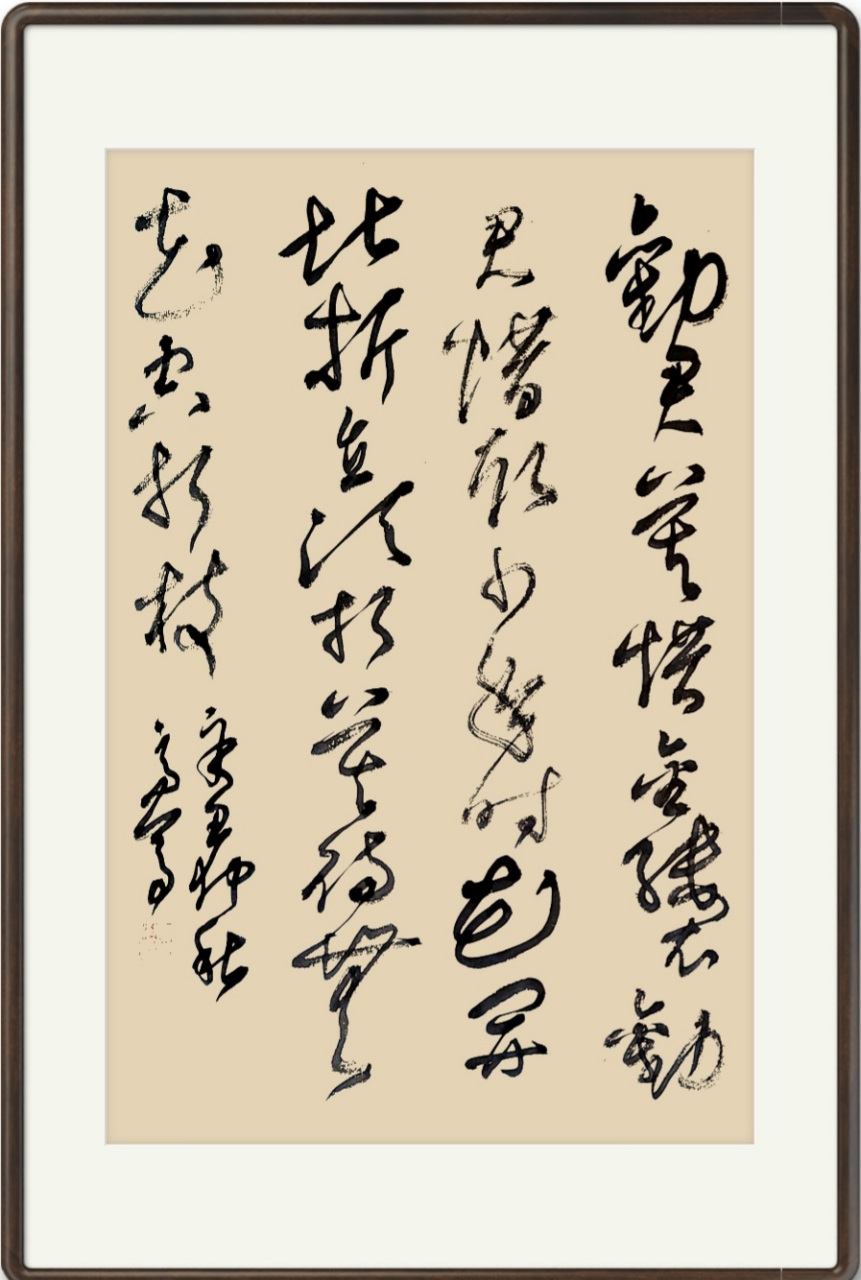 勸君莫惜金縷衣勸
君惜取少年时花開
堪折直須折莫待無
花空折枝
辛丑仲秋